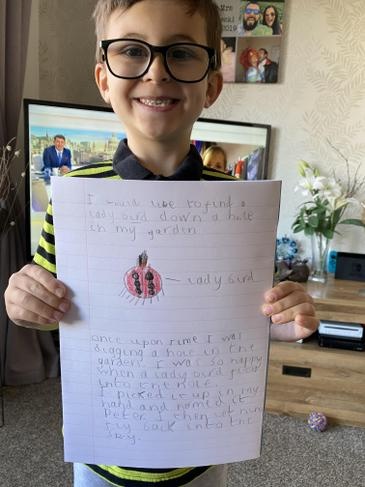 I would like to find a
lady bird down a hole
in my garden
lady bird
once upon time I was
digging a hole in the
garden I was so happy
when a lady bird flew
into the hole.
I picked it up in my
hand and named it
Peter I then let him
fly back into the
sky.